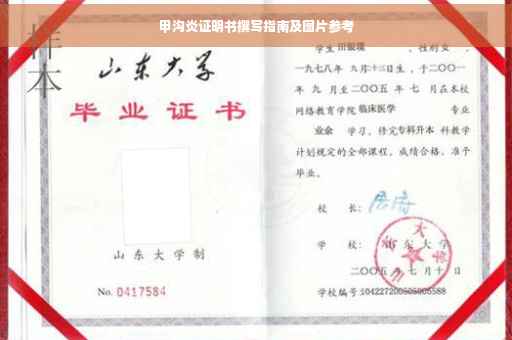 甲沟炎证明书撰写指南及图片参考
样本
山东大学
毕业证书
山东大学制
No. 0417584
学生 田银璞 ，性别 女 ，
一九七八年 九月十三日生，于二〇〇一
年 九 月至二〇〇五 年 七 月在本校
网络教育学院 临床医学 专业
业余 学习，修完专科升本 科教学
计划规定的全部课程，成绩合格，准予
毕业。
校 长：
学 校： 山东大学
二〇〇五年 七月十日
学校编号:104227200505005588